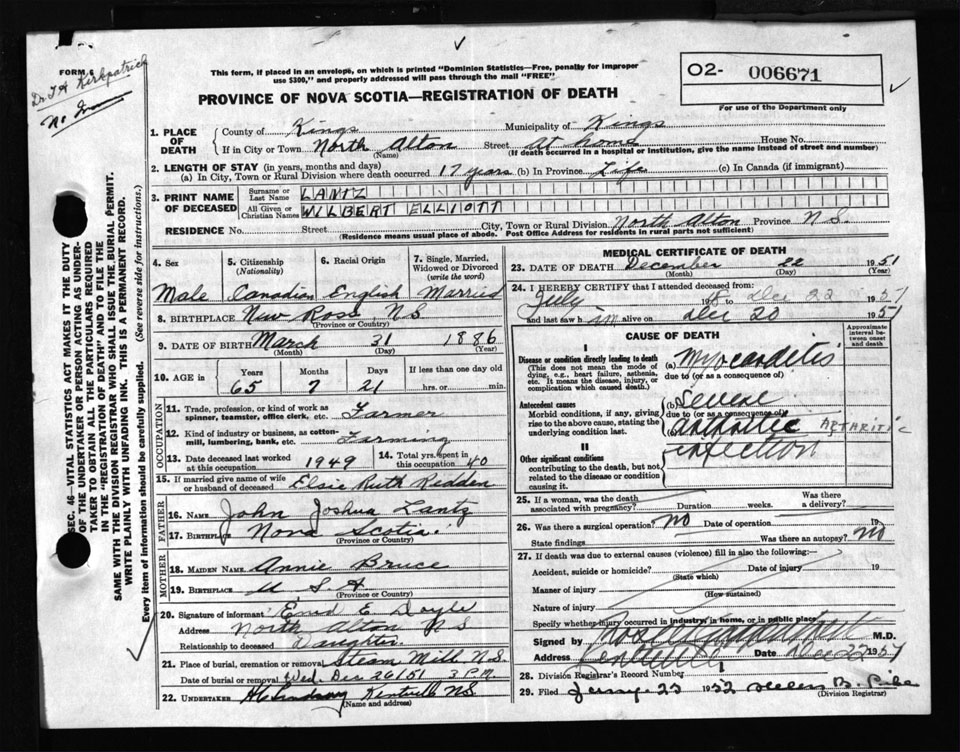 FORM 6
Dr. J A Kirkpatrick
This form, if placed in an envelope, on which is printed "Dominion Statistics—Free, penalty for improper
use $300," and properly addressed will pass through the mail "FREE"
PROVINCE OF NOVA SCOTIA—REGISTRATION OF DEATH
O2- 006671
For use of the Department only
1. PLACE OF DEATH
County of Kings Municipality of Kings
If in City or Town North Alton (Name) Street at home House No.
(If death occurred in a hospital or institution, give the name instead of street and number)
2. LENGTH OF STAY (in years, months and days)
(a) In City, Town or Rural Division where death occurred 17 years (b) In Province Life (c) In Canada (if immigrant)
3. PRINT NAME OF DECEASED
Surname or Last Name LANTZ
All Given or Christian Names WILBERT ELLIOTT
RESIDENCE No. Street City, Town or Rural Division North Alton Province N.S.
(Residence means usual place of abode. Post Office Address for residents in rural parts not sufficient)
4. Sex Male
5. Citizenship (Nationality) Canadian
6. Racial Origin English
7. Single, Married, Widowed or Divorced (write the word) Married
8. BIRTHPLACE New Ross, N.S.
(Province or Country)
9. DATE OF BIRTH March 31 1886
(Month) (Day) (Year)
10. AGE in Years 65 Months 7 Days 21 If less than one day old hrs. or min.
OCCUPATION
11. Trade, profession, or kind of work as spinner, teamster, office clerk, etc. Farmer
12. Kind of industry or business, as cotton-mill, lumbering, bank, etc. Farming
13. Date deceased last worked at this occupation 1949
14. Total yrs. spent in this occupation 40
15. If married give name of wife or husband of deceased Elsie Ruth Redden
FATHER
16. NAME John Joshua Lantz
17. BIRTHPLACE Nova Scotia
(Province or Country)
MOTHER
18. MAIDEN NAME Annie Bruce
19. BIRTHPLACE U.S.A
(Province or Country)
20. Signature of informant Enid E. Doyle
Address North Alton N S
Relationship to deceased Daughter.
21. Place of burial, cremation or removal Steam Mill N.S.
Date of burial or removal Wed. Dec 26/51 3 P.M.
22. UNDERTAKER Kentville NS
(Name and address)
MEDICAL CERTIFICATE OF DEATH
23. DATE OF DEATH December 22 1951
(Month) (Day) (Year)
24. I HEREBY CERTIFY that I attended deceased from:
July to Dec 22 1951
and last saw him alive on Dec 20 1951
CAUSE OF DEATH
Approximate interval between onset and death
I
Disease or condition directly leading to death
(This does not mean the mode of dying, e.g., heart failure, asthenia, etc. It means the disease, injury, or complication which caused death.)
(a) Myocarditis
due to (or as a consequence of)
Antecedent causes
Morbid conditions, if any, giving rise to the above cause, stating the underlying condition last.
(b) severe
due to (or as a consequence of)
(c) arthritic ARTHRITIC
infection
II
Other significant conditions
contributing to the death, but not related to the disease or condition causing it.
25. If a woman, was the death associated with pregnancy? Duration weeks. Was there a delivery?
26. Was there a surgical operation? no Date of operation 19
State findings Was there an autopsy? no
27. If death was due to external causes (violence) fill in also the following:—
Accident, suicide or homicide? (State which) Date of injury 19
Manner of injury (How sustained)
Nature of injury
Specify whether injury occurred in industry, in home, or in public place
Signed by M.D.
Address Kentville Date Dec 22 1951
28. Division Registrar's Record Number
29. Filed 23 1952 Helen B.
(Division Registrar)
SEC. 46—VITAL STATISTICS ACT MAKES IT THE DUTY
OF THE UNDERTAKER OR PERSON ACTING AS UNDER-
TAKER TO OBTAIN ALL THE PARTICULARS REQUIRED
IN THE "REGISTRATION OF DEATH" AND TO FILE THE
SAME WITH THE DIVISION REGISTRAR WHO SHALL ISSUE THE BURIAL PERMIT.
WRITE PLAINLY WITH UNFADING INK. THIS IS A PERMANENT RECORD.
Every item of information should be carefully supplied. (See reverse side for instructions.)